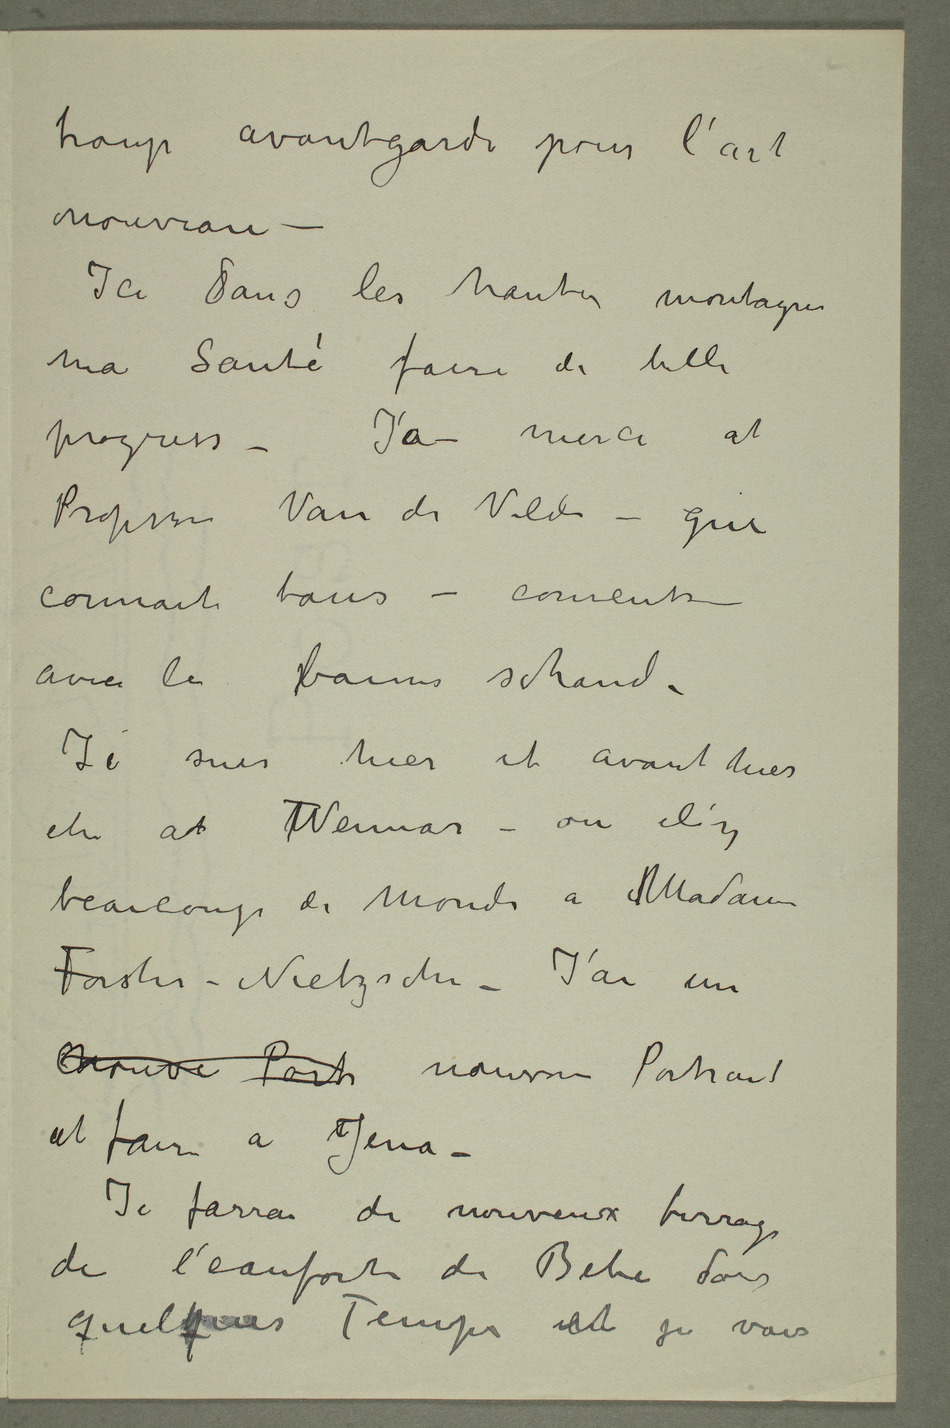 troup avantgarde pour l'art
nouveau —
Ici dans les hautes montagnes
ma Santé faire de belle
progress – J'a – merci at
Professor Van de Velde – que
connaite tous –
avec le bains schaud.
Je suis hier et avant hier
ete at Weimar – ou il'y
beaucoup de Monde a Madame
Førster-Nietzsche – J'ai un
nouve Port nouveau Portrait
at faire a Jena –
Je farrai de nouveux tirrage
de l'eauforte de Bebe dans
quelques Temps et je vais